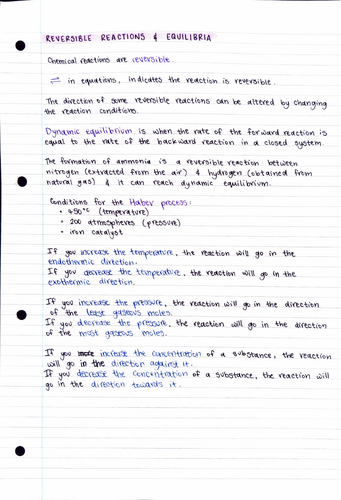 REVERSIBLE REACTIONS & EQUILIBRIA
Chemical reactions are reversible.
⇌ in equations, indicates the reaction is reversible.
The direction of some reversible reactions can be altered by changing
the reaction conditions.
Dynamic equilibrium is when the rate of the forward reaction is
equal to the rate of the backward reaction in a closed system.
The formation of ammonia is a reversible reaction between
nitrogen (extracted from the air) & hydrogen (obtained from
natural gas) & it can reach dynamic equilibrium.
Conditions for the Haber process:
• 450°C (temperature)
• 200 atmospheres (pressure)
• iron catalyst
If you increase the temperature, the reaction will go in the
endothermic direction.
If you decrease the temperature, the reaction will go in the
exothermic direction.
If you increase the pressure, the reaction will go in the direction
of the least gaseous moles.
If you decrease the pressure, the reaction will go in the direction
of the most gaseous moles.
If you increase the concentration of a substance, the reaction
will go in the direction against it.
If you decrease the concentration of a substance, the reaction will
go in the direction towards it.